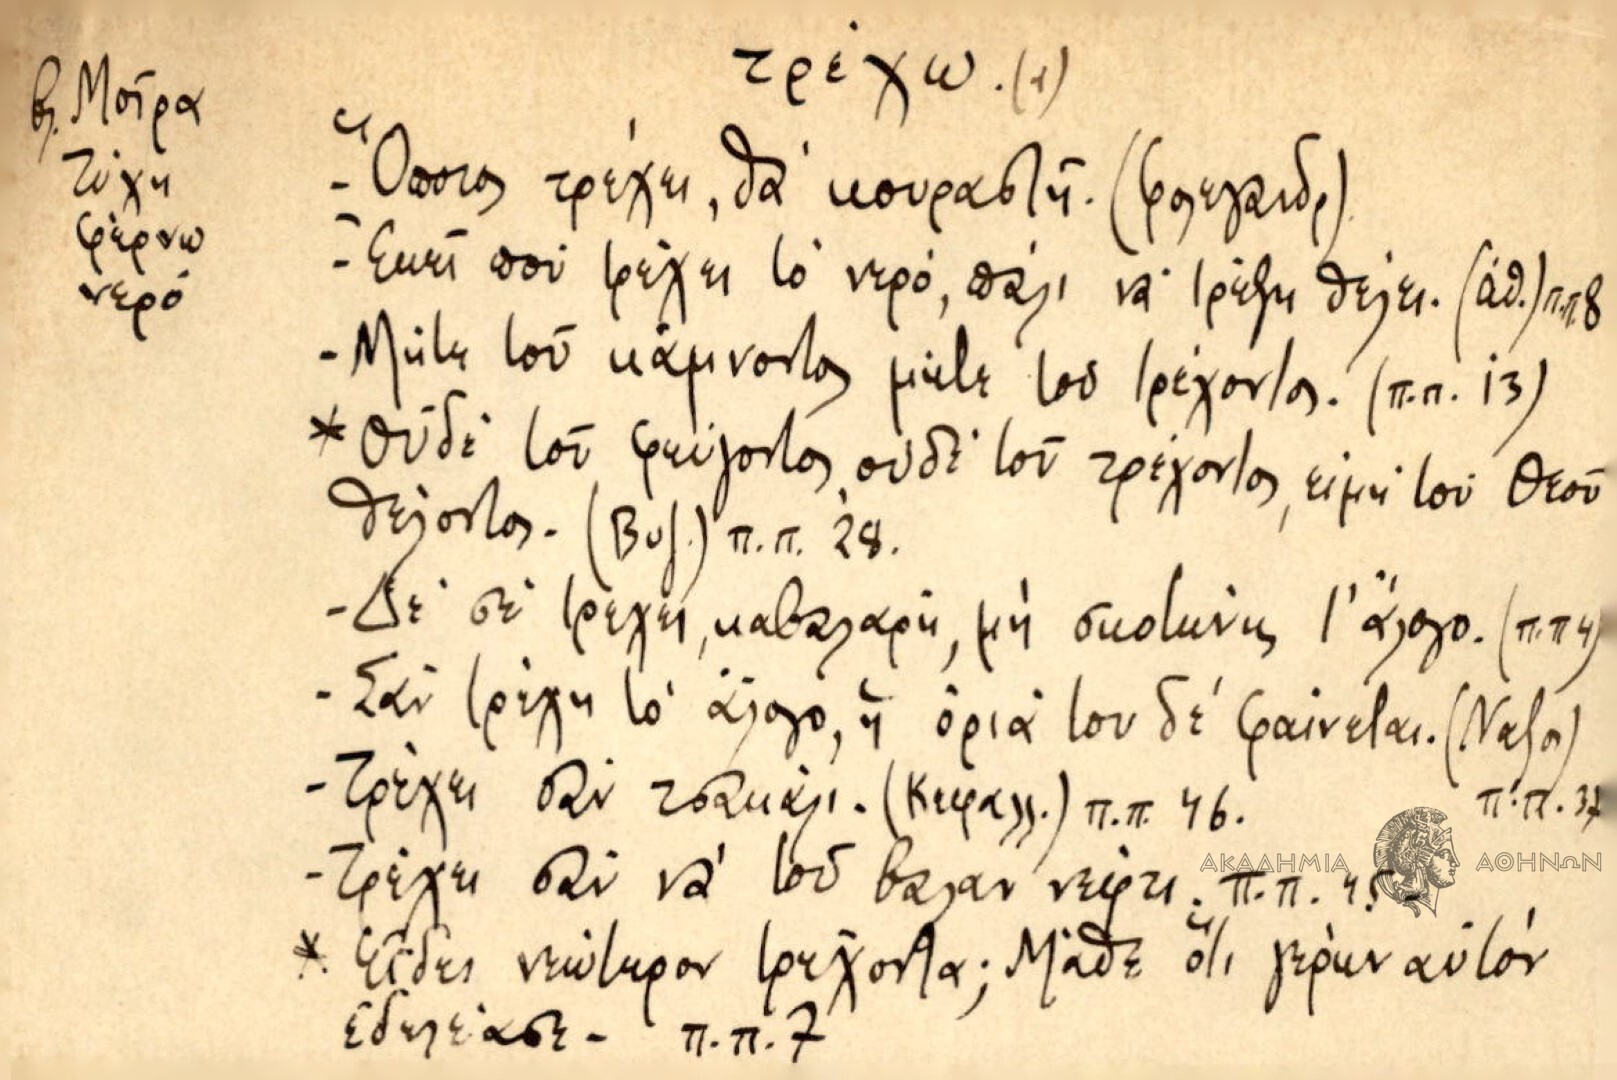 τρέχω. (1)
βλ. Μοῖρα
τύχη
φέρνω
νερό
- Ὅποιος τρέχει, θὰ κουραστῆ. (Φολεγανδρ)
- Ἐκεῖ ποὺ τρέχει τὸ νερό, πάλι νὰ τρέξη θέλει. (ἀθ.) π.π. 8
- Μήτε τοῦ κάμνοντος μήτε τοῦ τρέχοντος. (π.π. 13)
* Οὐδὲ τοῦ φεύγοντος, οὐδὲ τοῦ τρέχοντος, εἰμὴ τοῦ Θεοῦ
θέλοντος. (Βυζ.) π.π. 28.
- Δὲ σὲ τρέχει, καβαλάρη, μὴ σκοτώνης τ' ἄλογο. (π.π 4)
- Σὰν τρέχη τὸ ἄλογο, ἡ ὀριά του δὲ φαίνεται. (Ναξος)
π.π. 37
- Τρέχει σὰν τσακάλι. (Κεφαλλ.) π.π. 46.
- Τρέχει σὰν νὰ τοῦ βαλαν νέφτι. π.π. 45-
* Εἶδες νεώτερον τρέχοντα; Μάθε ὅτι γέρων αὐτὸν
ἐδελέασε - π.π. 7
ΑΚΑΔΗΜΙΑ ΑΘΗΝΩΝ